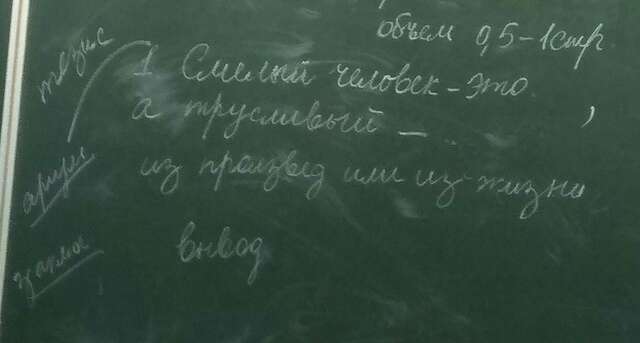 объем 0,5-1стр.
тезис
1 Смелый человек - это
а трусливый - ,
аргум
из произвед или из жизни
заключ
вывод